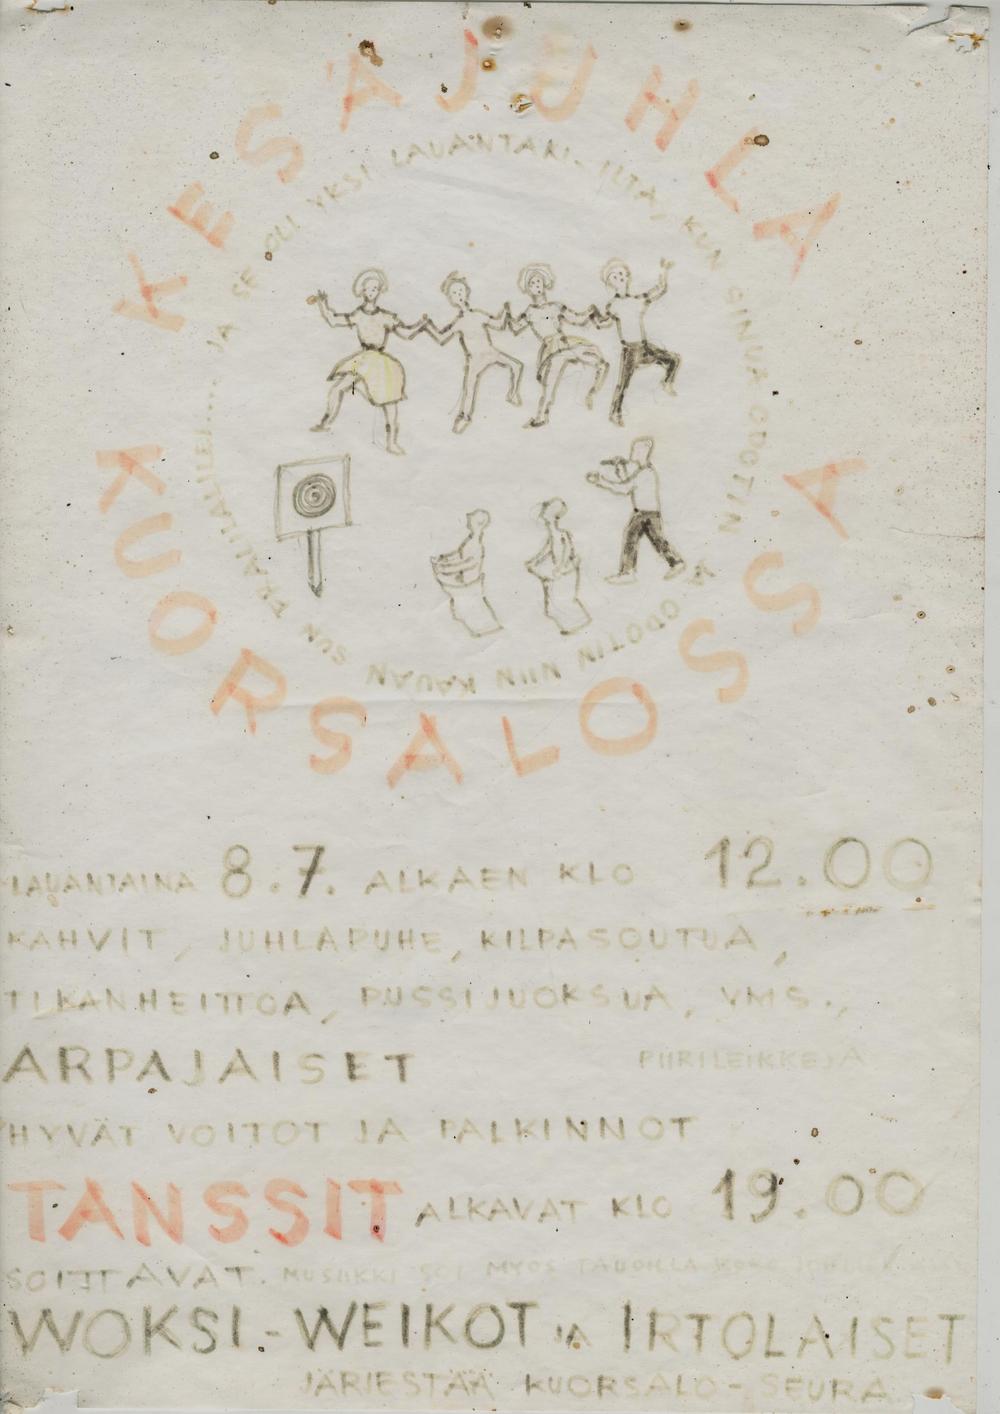 KESÄJUHLA
KUORSALOSSA
JA SE OLI YKSI LAUANTAKI-ILTA, KUN SINUA ODOTIN
JA ODOTIN NIIN KAUAN SUN TRALLILALLILEI....
LAUANTAINA 8.7. ALKAEN KLO 12.00
KAHVIT, JUHLAPUHE, KILPASOUTUA,
TIKANHEITTOA, PUSSIJUOKSUA, YMS.,
ARPAJAISET PIIRILEIKKEJÄ
HYVÄT VOITOT JA PALKINNOT
TANSSIT ALKAVAT KLO 19.00
SOITTAVAT. MUSIIKKI SOI MYÖS TAUOILLA KOKO
WOKSI-WEIKOT JA IRTOLAISET
JÄRJESTÄÄ KUORSALO-SEURA